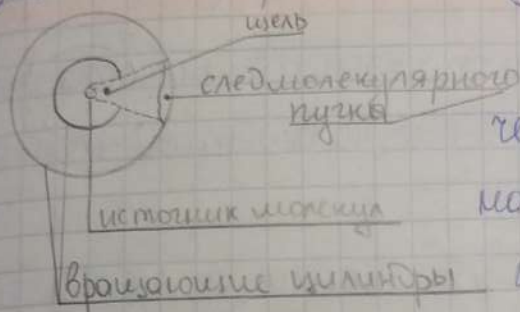 щель
следмолекулярного
пучка
че
источник молекул
мо
вращающие цилиндры